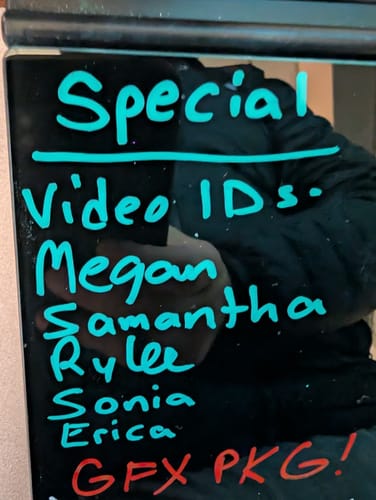 Special
Video IDs.
Megan
Samantha
Rylee
Sonia
Erica
GFX PKG!